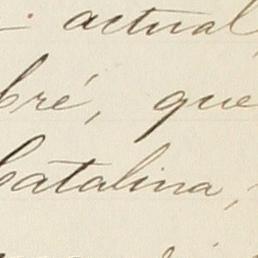 actual
bré, que
Catalina,